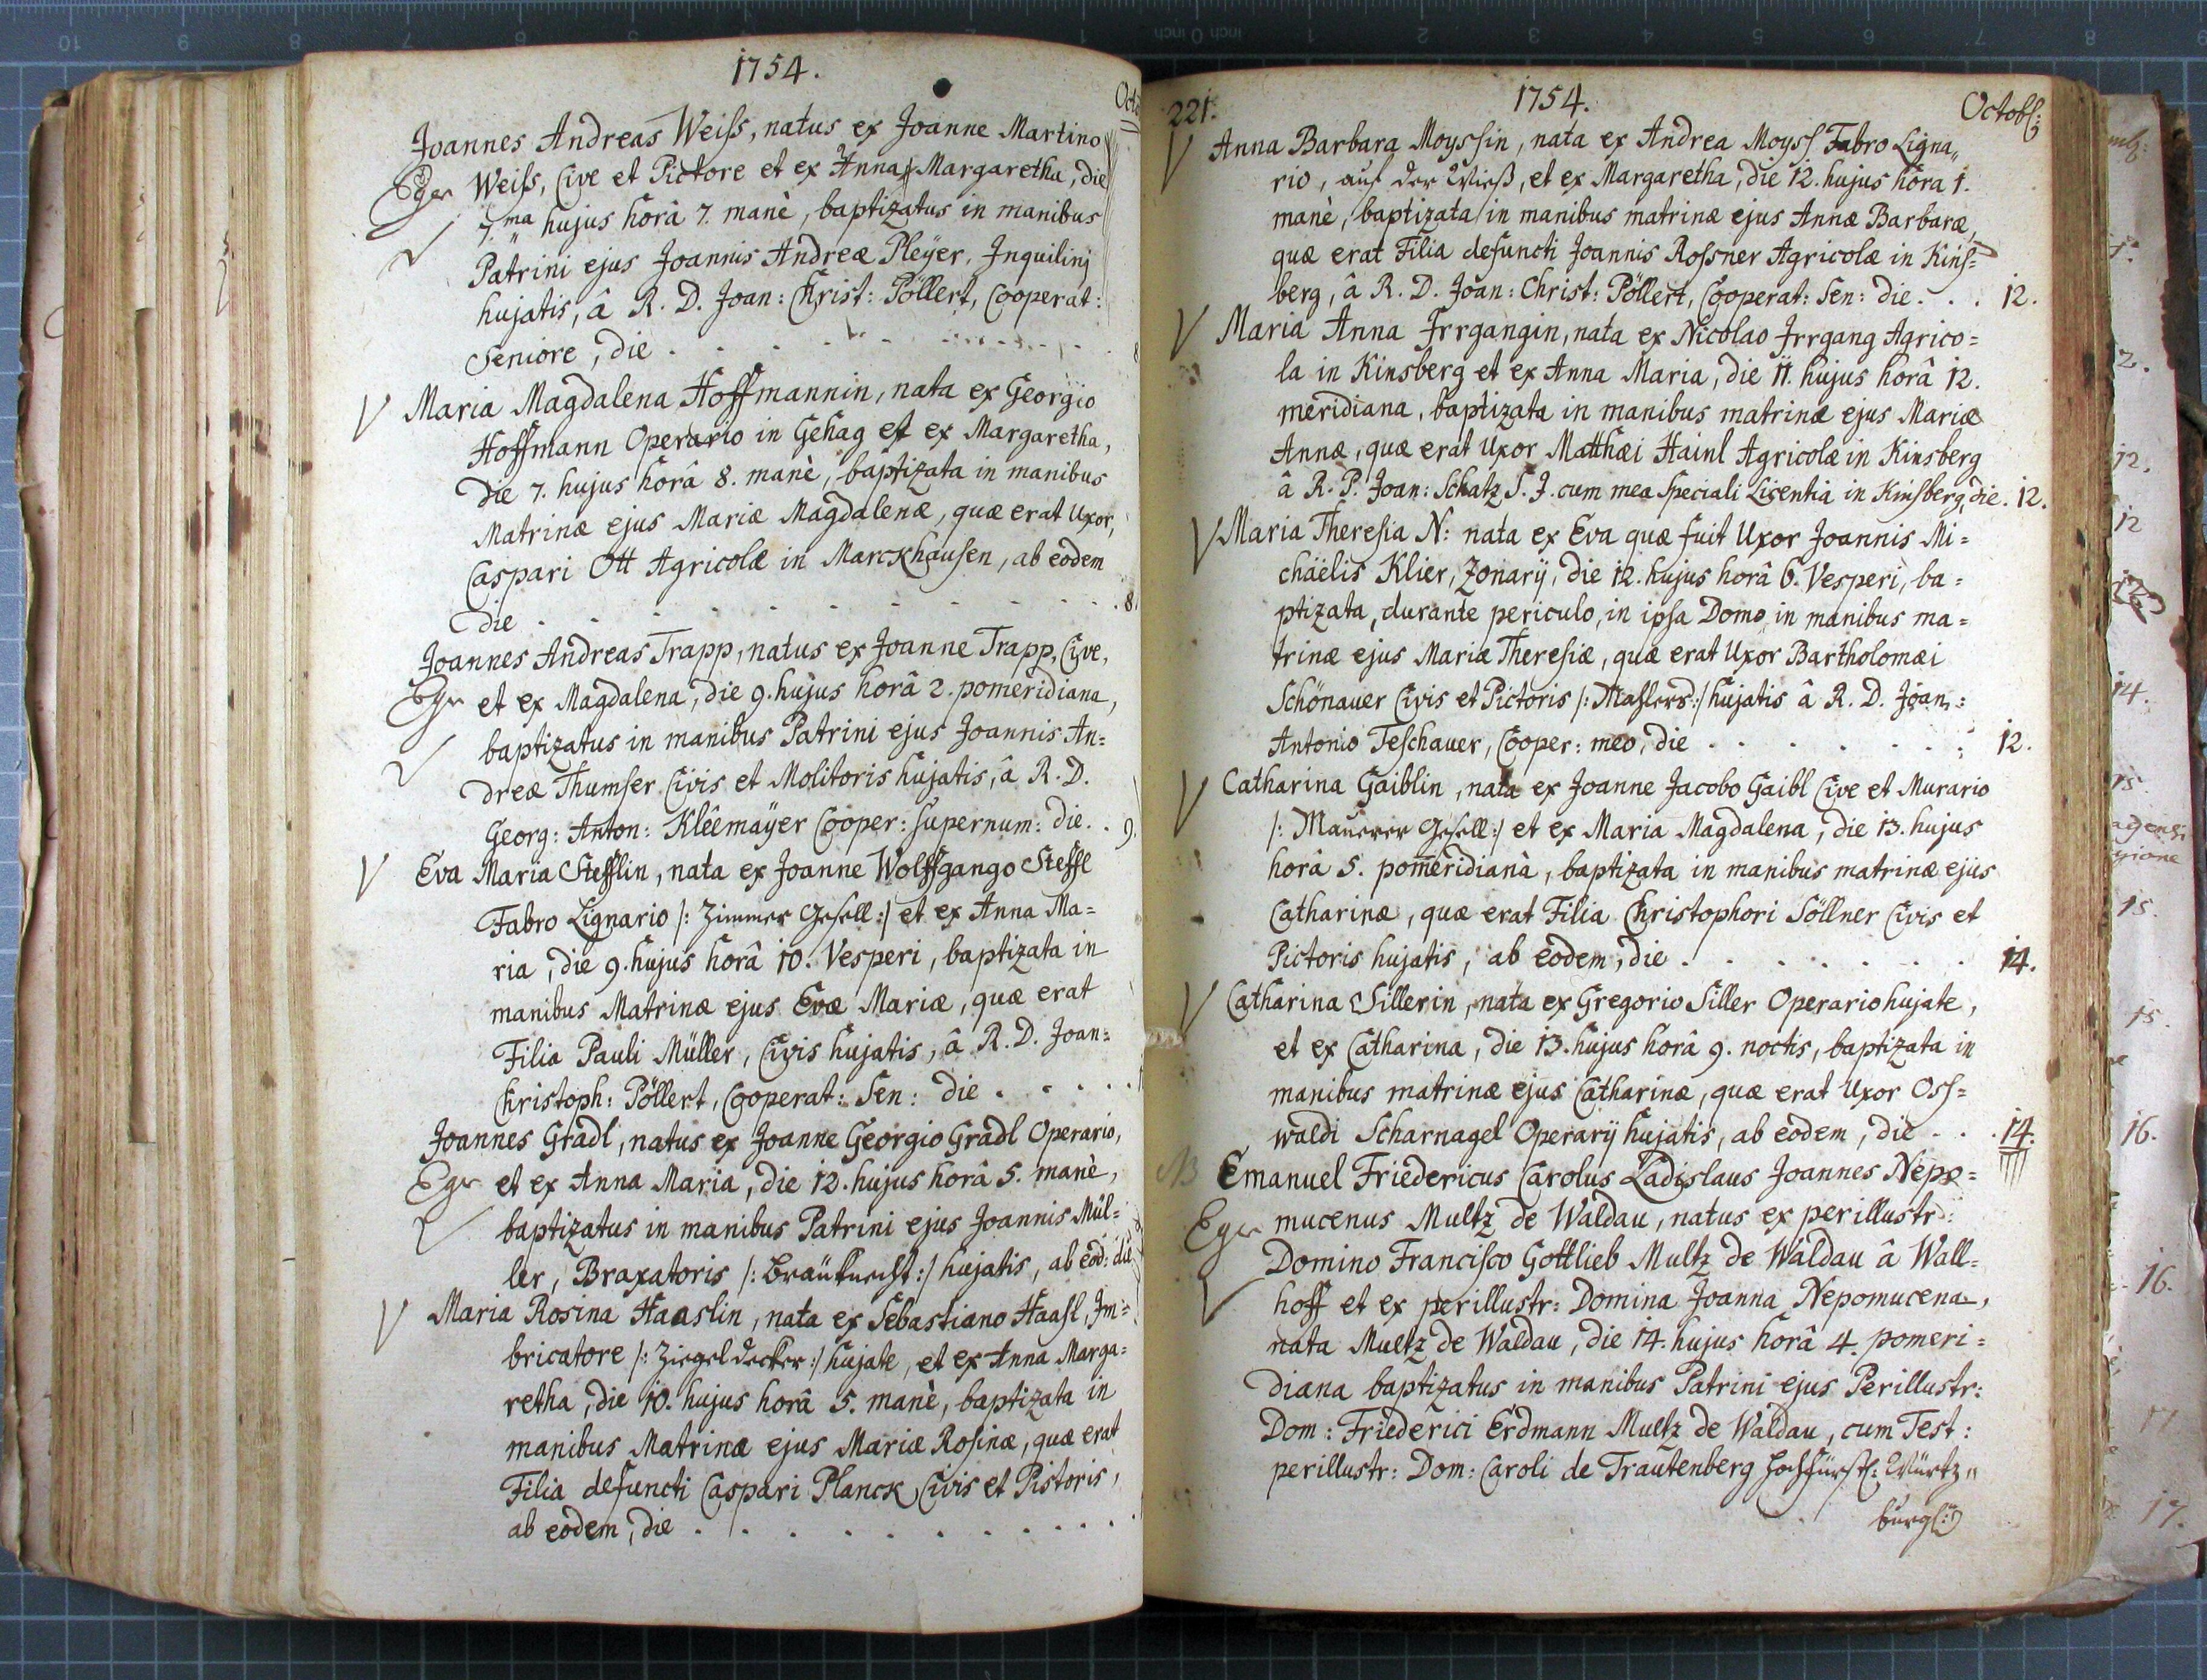 1754.
Octo
Joannes Andreas Weiss, natus ex Joanne Martino
Eger Weiss, Cive et Pictore et ex Anna Margaretha, die
7.ma hujus horâ 7. manè, baptizatus in manibus
Patrini ejus Joannis Andreæ Pleÿer, Inquilinj
hujatis, â R. D. Joan: Christ: Pöllert, Cooperat:
Seniore, die . . . . . . . . 8
V Maria Magdalena Hoffmannin, nata ex Georgio
Hoffmann Operario in Gehag et ex Margaretha,
die 7. hujus horâ 8. manè, baptizata in manibus
Matrinæ ejus Mariæ Magdalenæ, quæ erat Uxor,
Caspari Ott Agricolæ in Marckhausen, ab eodem
die . . . . . . . . . . 8.
Joannes Andreas Trapp, natus ex Joanne Trapp, Cive,
Eger et ex Magdalena, die 9. hujus horâ 2. pomeridiana,
baptizatus in manibus Patrini ejus Joannis An=
dreæ Thumser Civis et Molitoris hujatis, â R. D.
Georg: Anton: Kleêmaÿer Cooper: supernum: die . . 9.
V Eva Maria Stefflin, nata ex Joanne Wolffgango Steffl
Fabro Lignario /: Zimmer Gesell :/ et ex Anna Ma=
ria, die 9. hujus horâ 10. Vesperi, baptizata in
manibus Matrinæ ejus Evæ Mariæ, quæ erat
Filia Pauli Müller, Civis hujatis, â R. D. Joan=
Christoph: Pöllert, Cooperat: Sen: die . . . . .
Joannes Gradl, natus ex Joanne Georgio Gradl Operario,
Eger et ex Anna Maria, die 12. hujus horâ 5. manè,
baptizatus in manibus Patrini ejus Joannis Mül=
ler, Braxatoris /: Bräuknecht :/ hujatis, ab eod: die
V Maria Rosina Haaslin, nata ex Sebastiano Haasl, Im=
bricatore /: Ziegeldecker :/ hujate, et ex Anna Marga=
retha, die 10. hujus horâ 5. manè, baptizata in
manibus Matrinæ ejus Mariæ Rosinæ, quæ erat
Filia defuncti Caspari Planck Civis et Pistoris,
ab eodem, die . . . . . . . . . .
221.
1754.
Octob:
V Anna Barbara Moyssin, nata ex Andrea Moyss Fabro Ligna„
rio, auf der Wieß, et ex Margaretha, die 12. hujus hora 1.
manè, baptizata in manibus matrinæ ejus Annæ Barbaræ,
quæ erat Filia defuncti Joannis Rossner Agricolæ in Kins=
berg, â R. D. Joan: Christ: Pöllert, Cooperat: Sen: die . . . 12.
V Maria Anna Irrgangin, nata ex Nicolao Irrgang Agrico=
la in Kinsberg et ex Anna Maria, die 11. hujus horâ 12.
meridiana, baptizata in manibus matrinæ ejus Mariæ
Annæ, quæ erat Uxor Matthæi Hainl Agricolæ in Kinsberg
â R. P. Joan: Schatz S. J. cum mea Speciali Licentia in Kinsberg, die . 12.
V Maria Theresia N: nata ex Eva quæ fuit Uxor Joannis Mi=
chäelis Klier, Zonarij, die 12. hujus horâ 6. Vesperi, ba=
ptizata, durante periculo, in ipsa Domo in manibus ma=
trinæ ejus Mariæ Theresiæ, quæ erat Uxor Bartholomæi
Schönauer Civis et Pictoris /: Mahlers :/ hujatis â R. D. Joan:
Antonio Teschauer, Cooper: meo, die . . . . . . . 12.
V Catharina Gaiblin, nata ex Joanne Jacobo Gaibl Cive et Murario
/: Maurer Gesell :/ et ex Maria Magdalena, die 13. hujus
horâ 5. pomeridianâ, baptizata in manibus matrinæ ejus
Catharinæ, quæ erat Filia Christophori Söllner Civis et
Pictoris hujatis, ab eodem, die . . . . . . . 14.
V Catharina Sillerin, nata ex Gregorio Siller Operario hujate,
et ex Catharina, die 13. hujus horâ 9. noctis, baptizata in
manibus matrinæ ejus Catharinæ, quæ erat Uxor Oss=
waldi Scharnagel Operarij hujatis, ab eodem, die . . . 14.
NB Emanuel Friedericus Carolus Ladislaus Joannes Nepo=
Eger mucenus Multz de Waldau, natus ex perillustr:
Domino Francisco Gottlieb Multz de Waldau â Wall=
hoff et ex perillustr: Domina Joanna Nepomucena,
nata Multz de Waldau, die 14. hujus horâ 4. pomeri=
diana baptizatus in manibus Patrini ejus Perillustr:
Dom: Friederici Erdmann Multz de Waldau, cum Test:
perillustr: Dom: Caroli de Trautenberg hochfürstl: Würtz„
burgl:
2.
12.
12
14.
15.
15.
15.
16.
16.
17
17.